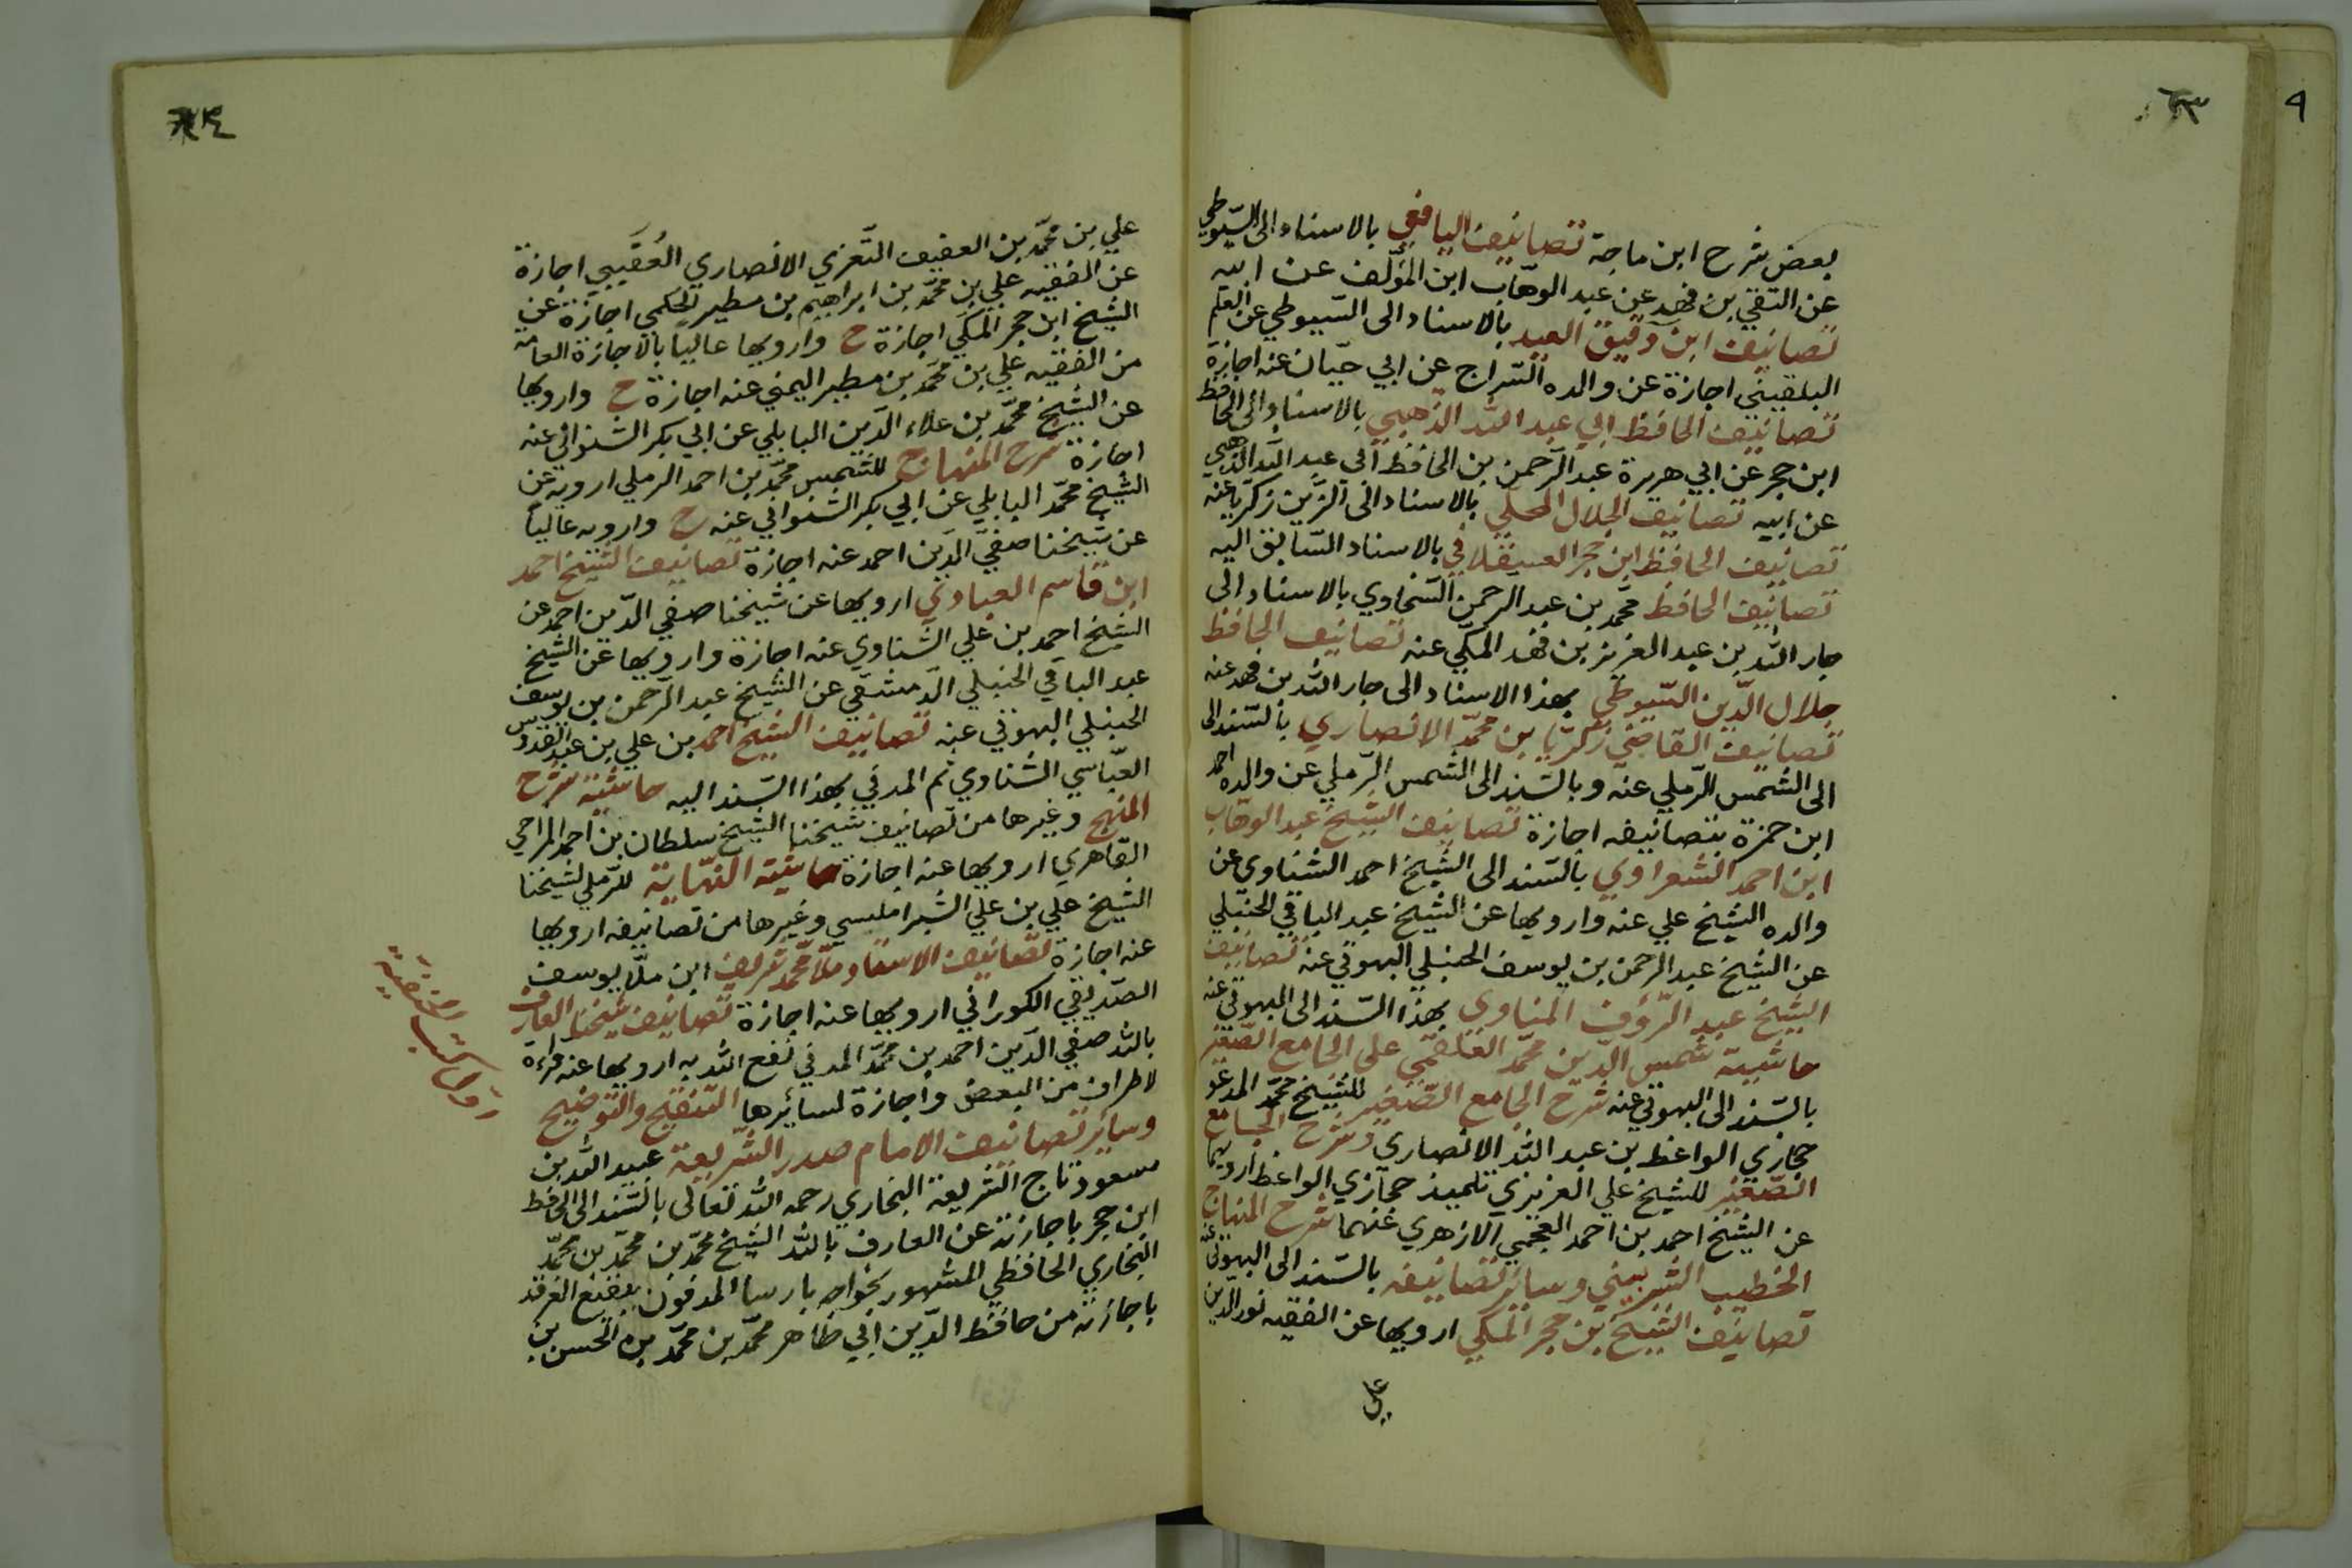 ٩
٦٣
بعض شرح ابن ماجة تصانيف اليافعي بالاسناد الى السّيوطي
عن التقي بن فهد عن عبد الوهّاب ابن المؤلّف عن ابيه
تصانيف ابن دقيق العيد بالاسناد الى السّيوطي عن العلم
البلقيني اجازة عن والده السّراج عن ابي حيّان عنه اجازة
تصانيف الحافظ ابي عبد الله الذّهبي بالاسناد الى الحافظ
ابن حجر عن ابي هريرة عبد الرّحمن بن الحافظ ابي عبد الله الذّهبي
عن ابيه تصانيف الجلال المحلّي بالاسناد الى الزّين زكريا عنه
تصانيف الحافظ ابن حجر العسقلاني بالاسناد السّابق اليه
تصانيف الحافظ محمّد بن عبد الرحمن السّخاوي بالاسناد الى
جار الله بن عبد العزيز بن فهد المكّي عنه تصانيف الحافظ
جلال الدّين السّيوطي بهذا الاسناد الى جار الله بن فهد عنه
تصانيف القاضي زكريّا بن محمّد الانصاري بالسّند الى
الى الشّمس الرّملي عنه وبالسّند الى الشّمس الرّملي عن والده احمد
ابن حمزة بتصانيفه اجازة تصانيف الشّيخ عبد الوهّاب
ابن احمد الشّعراوي بالسّند الى الشّيخ احمد الشّنّاوي عن
والده الشّيخ علي عنه وارويها عن الشّيخ عبد الباقي الحنبلي
عن الشّيخ عبد الرحمن بن يوسف الحنبلي البهوتي عنه تصانيف
الشّيخ عبد الرّؤف المناوي بهذا السّند الى البهوتي عنه
حاشية شمس الدّين محمّد العلقمي على الجامع الصّغير
بالسّند الى البهوتي عنه شرح الجامع الصّغير للشّيخ محمّد المدعو
حجازي الواعظ بن عبد الله الانصاري وشرح الجامع
الصّغير للشيخ علي العزيزي تلميذ حجازي الواعظ ارويهما
عن الشّيخ احمد بن احمد العجمي الازهري عنهما شرح المنهاج
الخطيب الشّربيني وسائر تصانيفه بالسّند الى البهوتي عنه
تصانيف الشّيخ ابن حجر المكّي ارويها عن الفقيه نور الدّين
علي
علي بن محمّد بن العفيف التّعزي الانصاري العُقَيبي اجازة
عن الفقيه علي بن محمّد بن ابراهيم بن مطير الحكمي اجازة عن
الشّيخ ابن حجر المكّي اجازة ح وارويها عاليا بالاجازة العامّة
من الفقيه علي بن محمّد بن مطير اليمني عنه اجازة ح وارويها
عن الشّيخ محمّد بن علاء الدّين البابلي عن ابي بكر الشنواني عنه
اجازة شرح المنهاج للشمس محمّد بن احمد الرملي ارويه عن
الشّيخ محمّد البابلي عن ابي بكر الشنواني عنه ح وارويه عاليا
عن شيخنا صفيّ الدّين احمد عنه اجازة تصانيف الشّيخ احمد
ابن قاسم العبادي ارويها عن شيخنا صفي الدّين احمد عن
الشّيخ احمد بن علي الشّناوي عنه اجازة وارويها عن الشّيخ
عبد الباقي الحنبلي الدّمشقي عن الشّيخ عبد الرّحمن بن يوسف
الحنبلي البهوتي عنه تصانيف الشّيخ احمد بن علي بن عبد القدوس
العبّاسي الشّناوي ثم المدني بهذا السّند اليه حاشية شرح
المنهج وغيرها من تصانيف شيخنا الشّيخ سلطان بن احمد المزاحي
القاهري ارويها عنه اجازة حاشية النّهاية للرّملي لشيخنا
الشّيخ علي بن علي الشّبراملسي وغيرها من تصانيفه ارويها
عنه اجازة تصانيف الاستاد ملّا محمّد شريف ابن ملّا يوسف
الصّدّيقي الكوراني ارويها عنه اجازة تصانيف شيخنا العارف
بالله صفيّ الدّين احمد بن محمّد المدني نفع الله به ارويها عنه قراءة
لاطراف من البعض واجازة لسائرها التّنقيح والتّوضيح
وسائر تصانيف الامام صدر الشّريعة عبيد الله بن
مسعود تاج الشّريعة البخاري رحمه الله تعالى بالسّند الى الحافظ
ابن حجر باجازته عن العارف بالله الشّيخ محمّد بن محمّد بن محمّد
البخاري الحافظي المشهور بخواجه بارسا المدفون ببقيع الغرقد
باجازته من حافظ الدّين ابي طاهر محمّد بن محمّد بن الحسن بن
كتب الحنفية